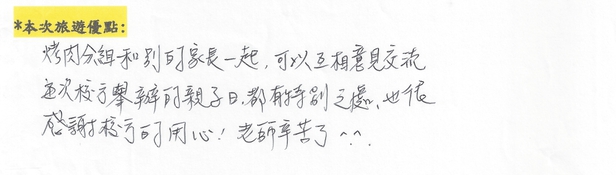 *本次旅遊優點:
烤肉分組和別的家長一起,可以互相意見交流
逐次校方舉辦的親子日,都有特別之處,也很
感謝校方的用心!老師辛苦了^^.